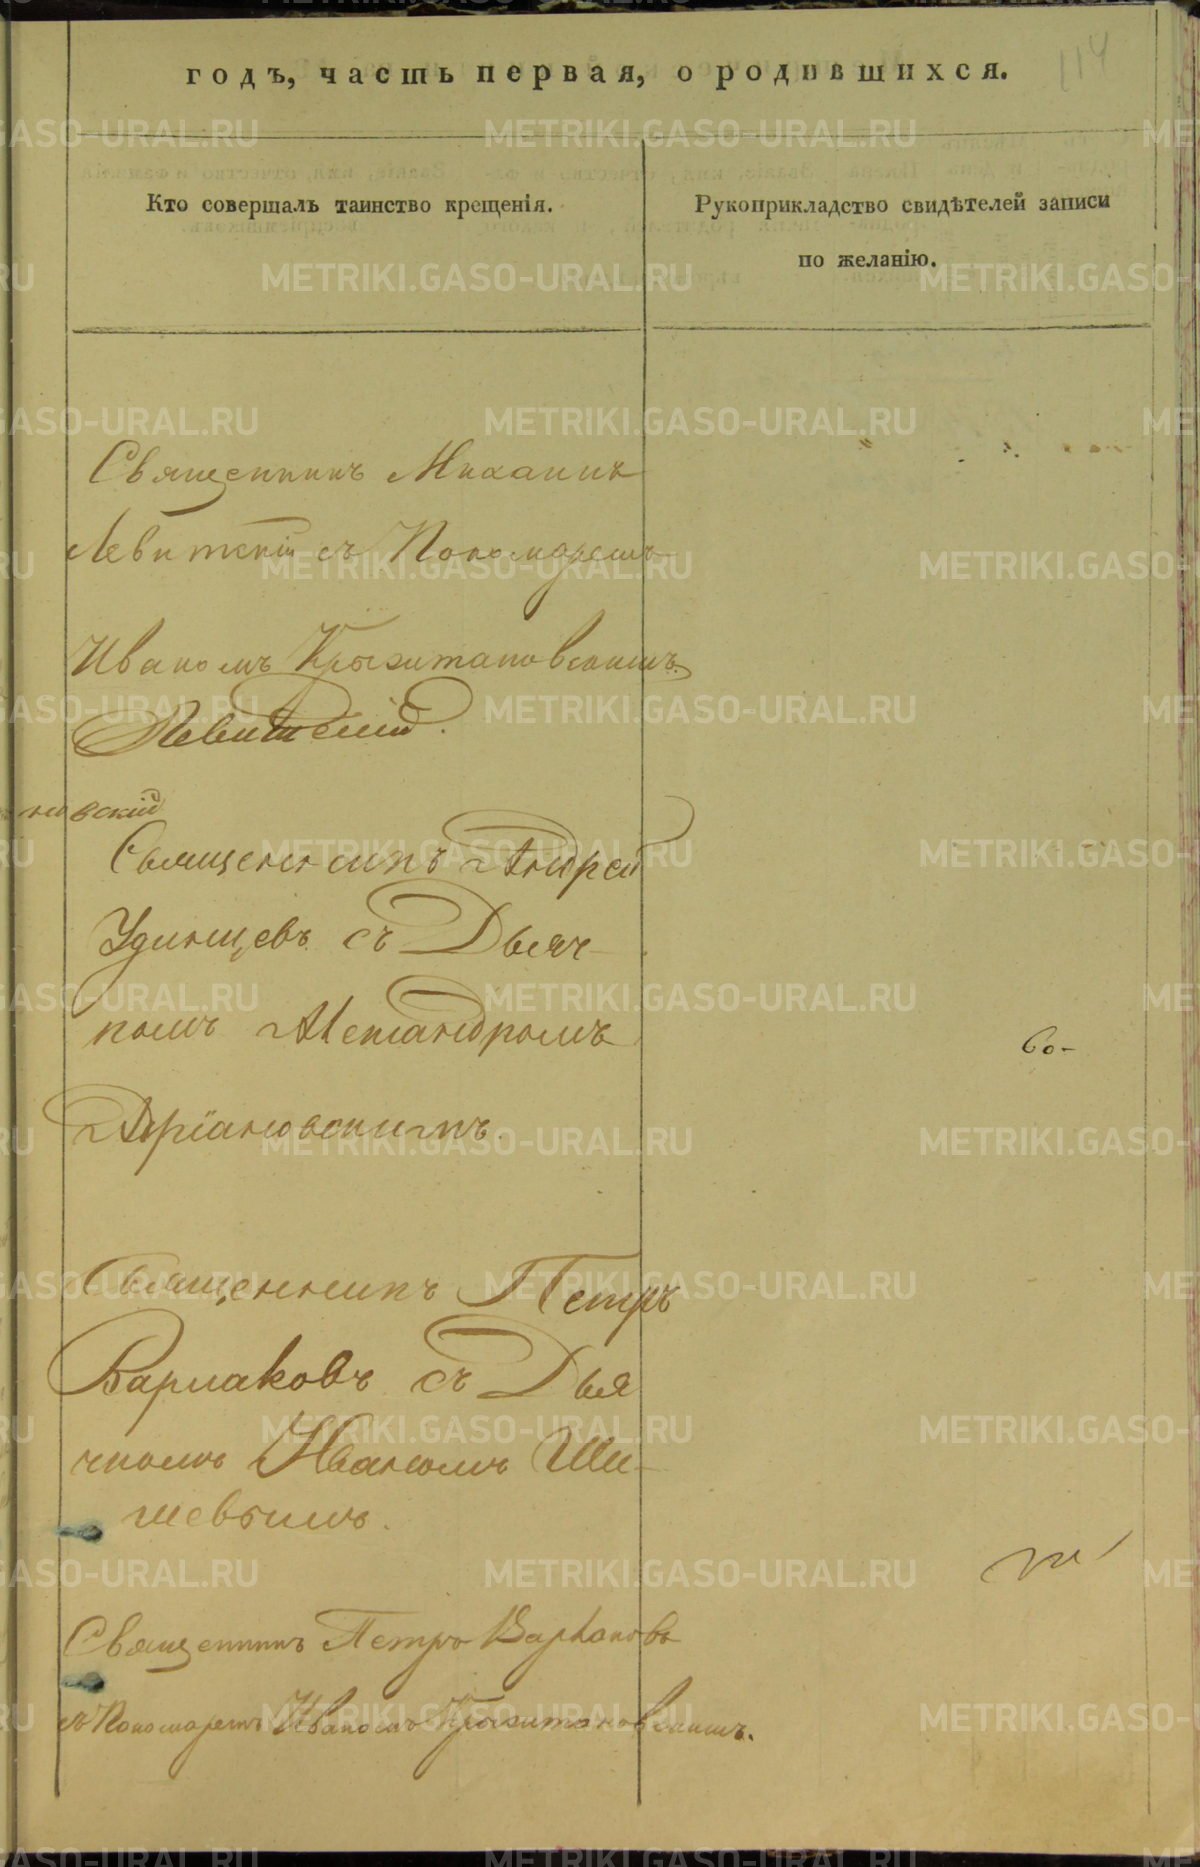 114
годъ, часть первая, о родившихся.
Кто совершалъ таинство крещенія.
Рукоприкладство свидѣтелей записи
по желанію.
Священникъ Михаилъ
Левитскій съ Пономаремъ
Иваномъ Крыжановскимъ
Левитскій.
новскій
Священникъ Андрей
Удинцевъ съ Дьяч-
комъ Александромъ
Адріановскимъ.
Священникъ Петръ
съ Дья
чкомъ Иваномъ Ши-
шевымъ.
Священникъ Петръ
съ Пономаремъ Иваномъ
METRIKI.GASO-URAL.RU